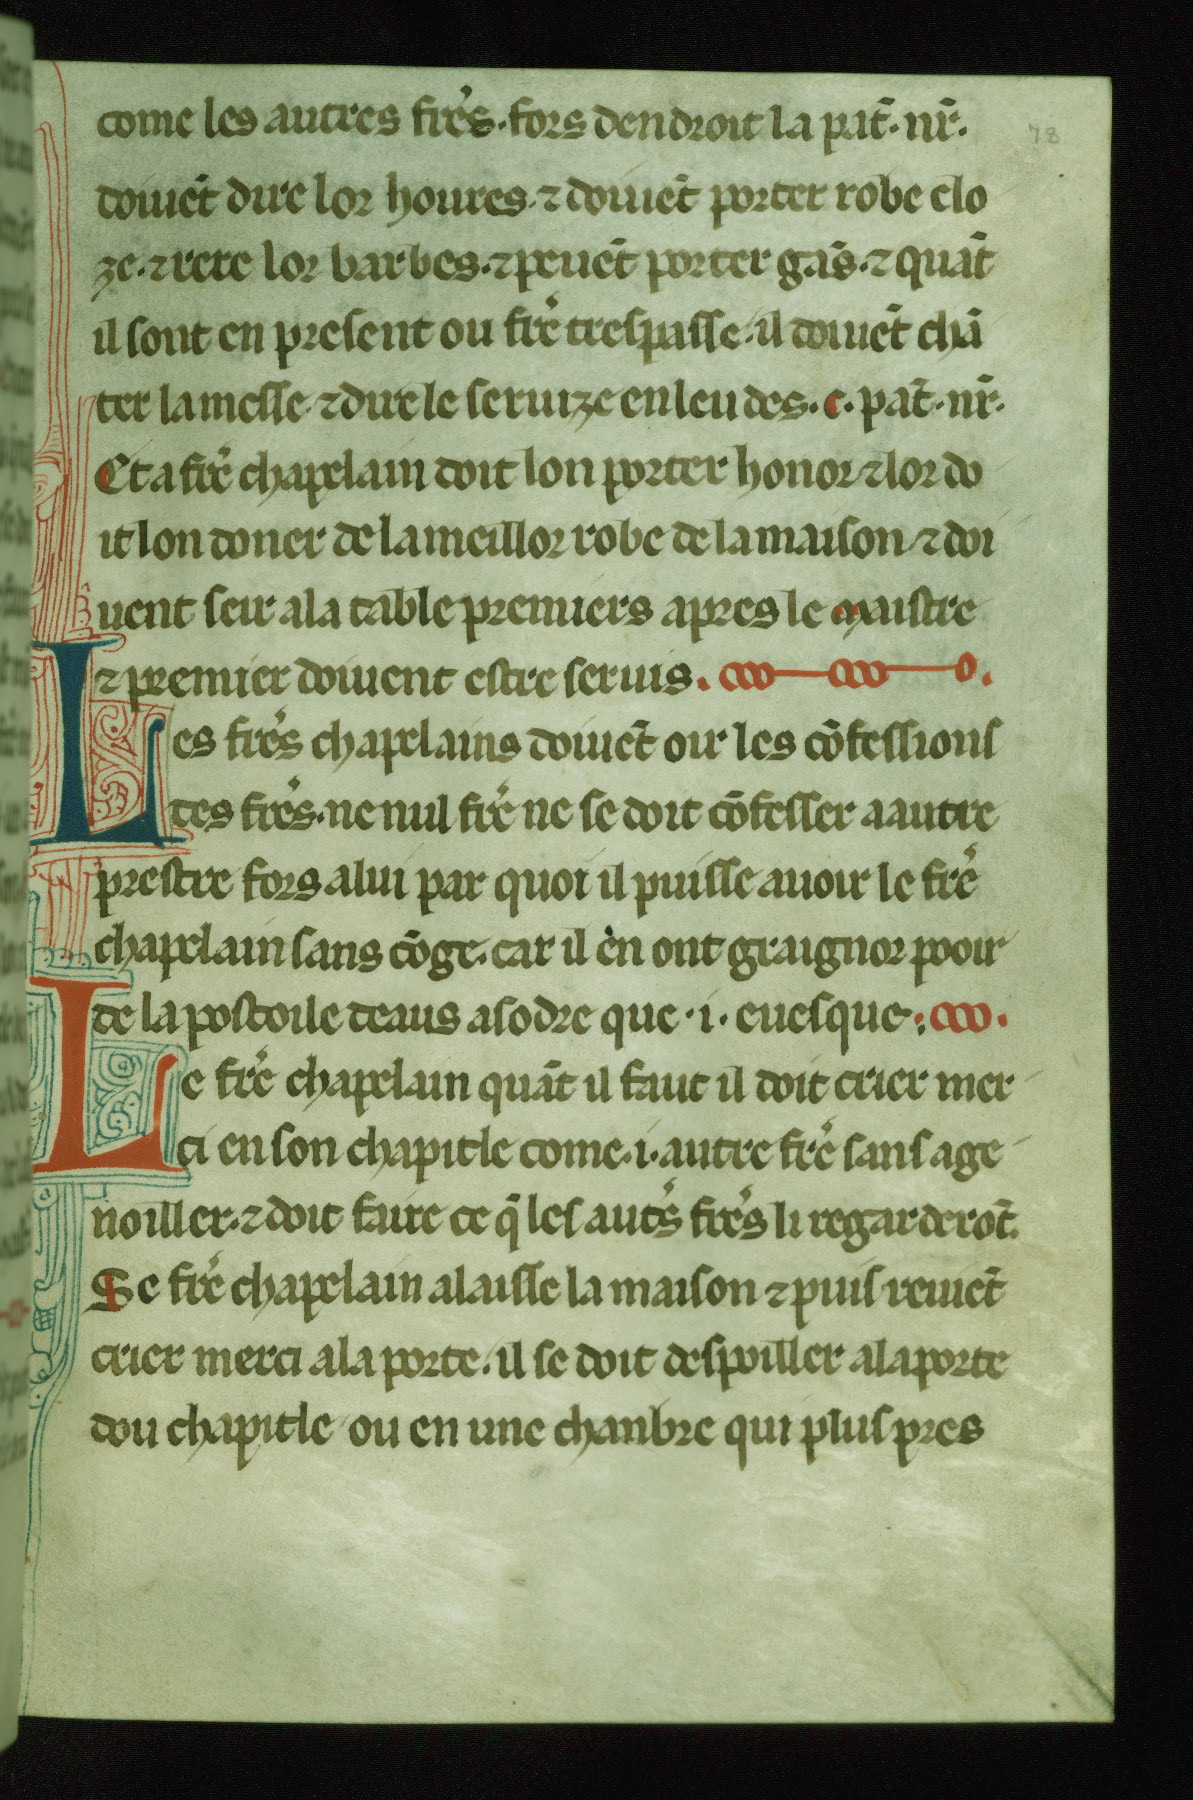 come les autres fr̃es. fors dendroit la pat̃. nr̃.
doiuẽt dire lor houres. ⁊ doiuẽt porter robe clo
ze. ⁊ rere lor barbes. ⁊ peuẽt porter gãs. ⁊ quãt
il sont en present ou fr̃e trespasse. il doiuẽt chã
ter la messe. ⁊ dire le seruize en leu des. c. pat̃. nr̃.
Et a fr̃e chapelain doit lon porter honor ⁊ lor do
it lon doner de la meillor robe de la maison. ⁊ doi
uent seir a la table premiers apres le maistre
⁊ premier doiuent estre seruis.
Les fr̃es chapelains doiuẽt oir les cõfessions
des fr̃es. ne nul fr̃e ne se doit cõfesser a autre
prestre fors a lui par quoi il puisse auoir le fr̃e
chapelain sans cõge. car il en ont graignor pooir
de lapostoile deaus asodre que .i. euesque.
Le fr̃e chapelain quãt il faut il doit crier mer
ci en son chapitle come .i. autre fr̃e sans age
noiller. ⁊ doit faire ce q̃ les aut̃s fr̃es li regarderõt.
Se fr̃e chapelain a laisse la maison ⁊ puis reuiẽt
crier merci a la porte. il se doit despoiller a la porte
dou chapitle ou en une chanbre qui plus pres
78